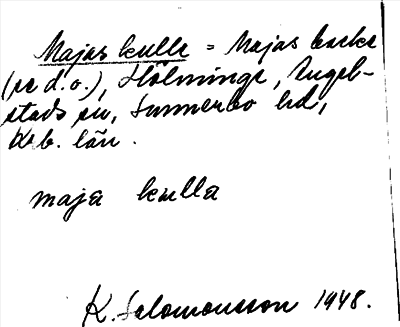 Majas kulle = Majas backe
(se d.o.), Hölminge, Angel-
stads sn, Sunnerbo hd,
Krb. län.
maja kulla
K. Salomonsson 1948.